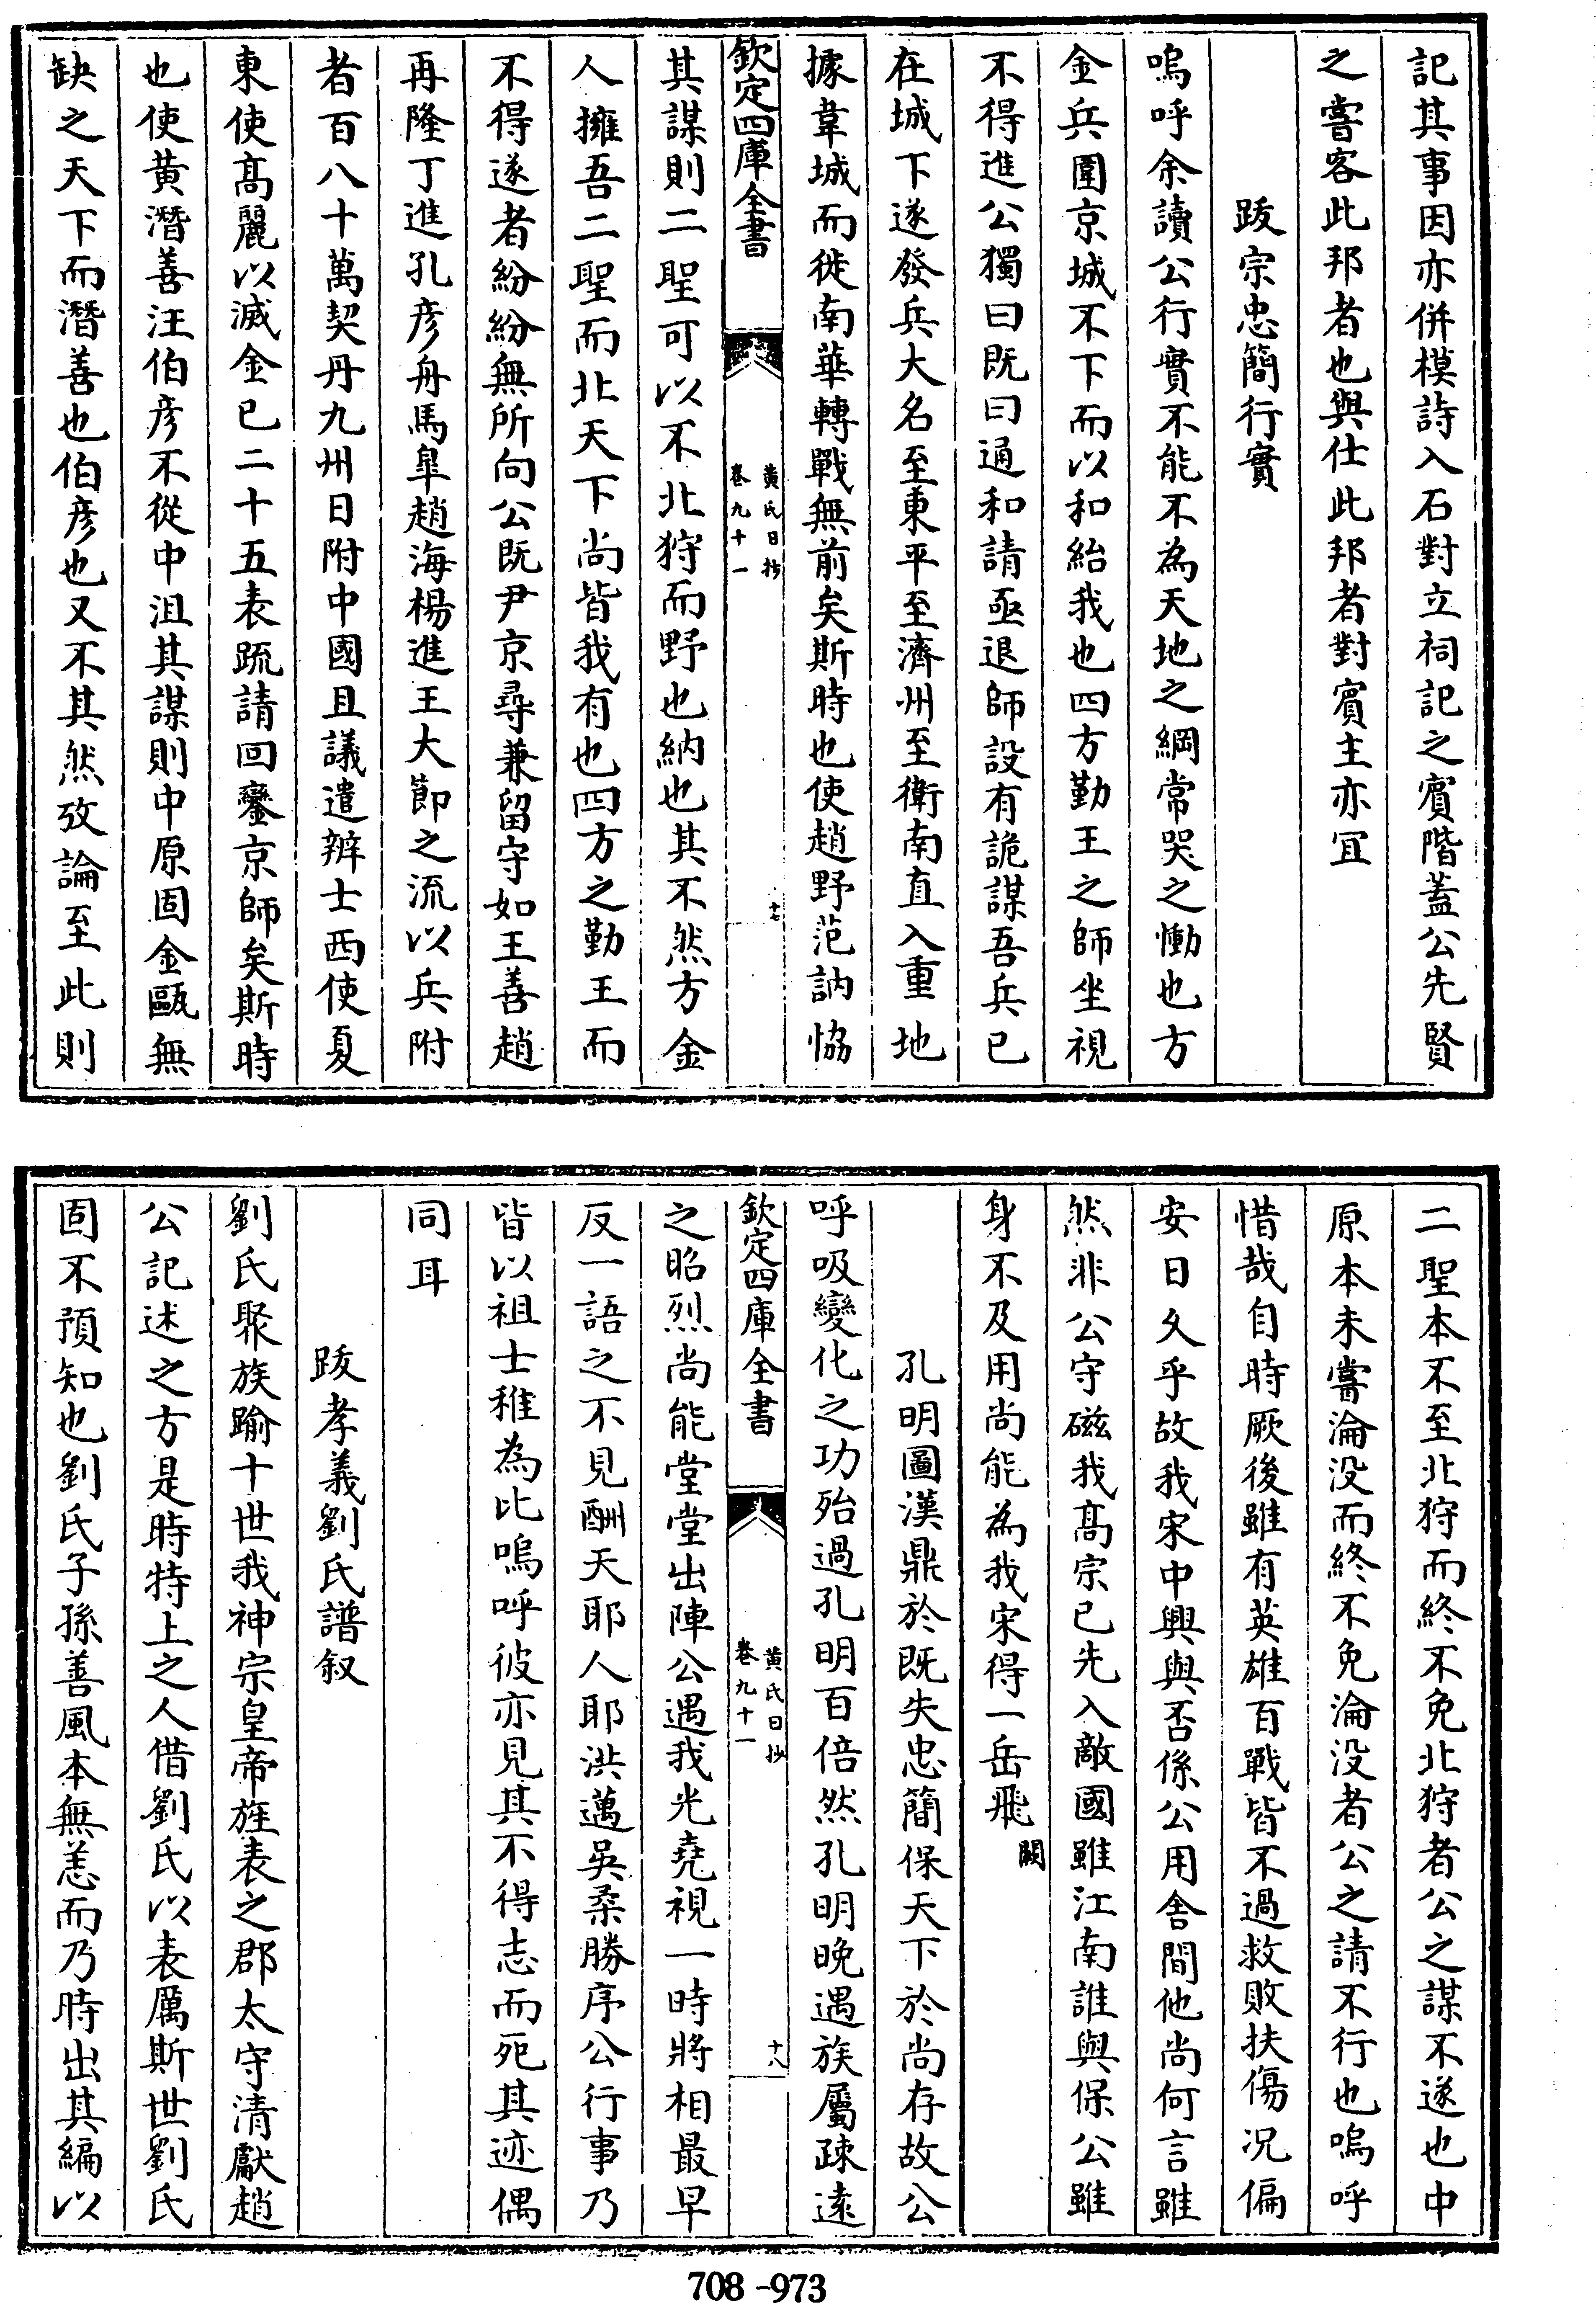 記其事因亦併模詩入石對立祠記之賔階蓋公先賢
之嘗客此邦者也與仕此邦者對賔主亦宜
跋宗忠簡行實
嗚呼余讀公行實不能不為天地之綱常哭之慟也方
金兵圍京城不下而以和紿我也四方勤王之師坐視
不得進公獨曰既曰通和請亟退師設有詭謀吾兵已
在城下遂發兵大名至東平至濟州至衛南直入重地
據韋城而徙南華轉戰無前矣斯時也使趙野范訥恊
欽定四庫全書
黄氏日抄
卷九十一
十七
其謀則二聖可以不北狩而野也納也其不然方金
人擁吾二聖而北天下尚皆我有也四方之勤王而
不得遂者紛紛無所向公既尹京尋兼留守如王善趙
再隆丁進孔彦舟馬臯趙海楊進王大節之流以兵附
者百八十萬契丹九州日附中國且議遣辨士西使夏
東使髙麗以滅金已二十五表疏請回鑾京師矣斯時
也使黄潛善汪伯彦不從中沮其謀則中原固金甌無
缺之天下而潛善也伯彦也又不其然攷論至此則
二聖本不至北狩而終不免北狩者公之謀不遂也中
原本未嘗淪没而終不免淪没者公之請不行也嗚呼
惜哉自時厥後雖有英雄百戰皆不過救敗扶傷况偏
安日久乎故我宋中興與否係公用舍間他尚何言雖
然非公守磁我髙宗已先入敵國雖江南誰與保公雖
身不及用尚能為我宋得一岳飛闕
孔明圖漢鼎於既失忠簡保天下於尚存故公
呼吸變化之功殆過孔明百倍然孔明晩遇族屬疎逺
欽定四庫全書
黄氏日抄
卷九十一
十八
之昭烈尚能堂堂出陣公遇我光堯視一時將相最早
反一語之不見酬天耶人耶洪邁吳柔勝序公行事乃
皆以祖士稚為比嗚呼彼亦見其不得志而死其迹偶
同耳
跋孝義劉氏譜叙
劉氏聚族踰十世我神宗皇帝旌表之郡太守清獻趙
公記述之方是時特上之人借劉氏以表厲斯世劉氏
固不預知也劉氏子孫善風本無恙而乃時出其編以
708-973